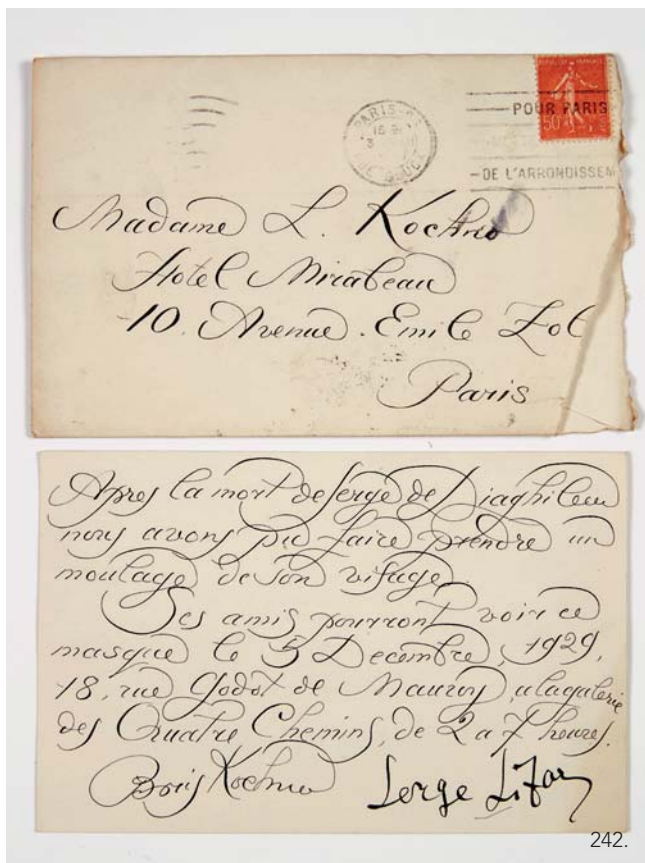 POUR PARIS
DE L'ARRONDISSEM
Madame L. Kochno
Hotel Mirabeau
10. Avenue. Emile Zol
Paris
Apres la mort de Serge de Diaghilew
nous avons pu faire prendre un
moulage de son visage
Ses amis pourront voir ce
masque le 5 Decembre, 1929,
18, rue Godot de Mauroy, a la galerie
des Quatre Chemins, de 2 a 7 heures.
Boris Kochno Serge Lifar
242.